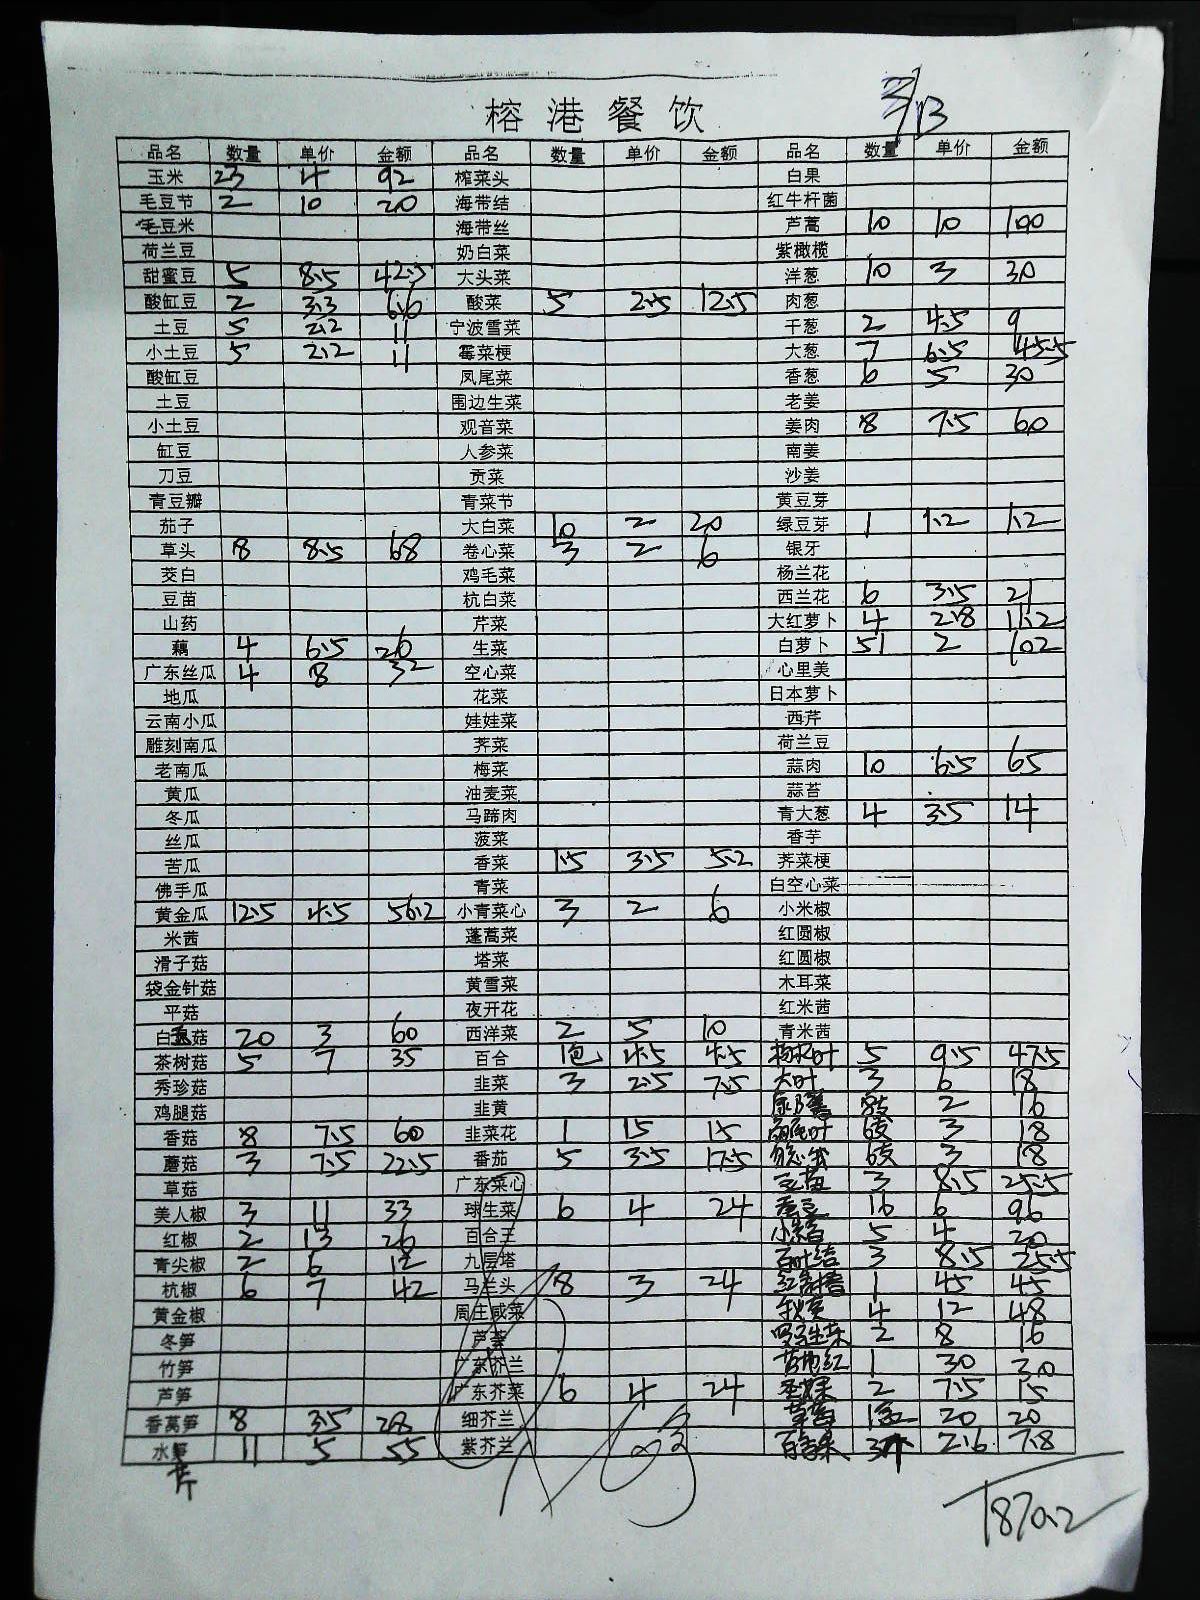 榕港餐饮
品名 数量 单价 金额 品名 数量 单价 金额 品名 数量 单价 金额
玉米 23 4 92 榨菜头 白果
毛豆节 2 10 20 海带结 红牛杆菌
毛豆米 海带丝 芦蒿 10 10 100
荷兰豆 奶白菜 紫橄榄
甜蜜豆 5 8.5 42.5 大头菜 洋葱 10 3 30
酸缸豆 2 3.3 6.6 酸菜 5 2.5 12.5 肉葱
土豆 5 2.2 11 宁波雪菜 干葱 2 4.5 9
小土豆 5 2.2 11 霉菜梗 大葱 7 6.5 45.5
酸缸豆 凤尾菜 香葱 6 5 30
土豆 围边生菜 老姜
小土豆 观音菜 姜肉 8 7.5 60
缸豆 人参菜 南姜
刀豆 贡菜 沙姜
青豆瓣 青菜节 黄豆芽
茄子 大白菜 10 2 20 绿豆芽 1 1.2 1.2
草头 8 8.5 68 卷心菜 3 2 6 银牙
茭白 鸡毛菜 杨兰花
豆苗 杭白菜 西兰花 6 3.5 21
山药 芹菜 大红萝卜 4 2.8 11.2
藕 4 6.5 26 生菜 白萝卜 51 2 102
广东丝瓜 4 8 32 空心菜 心里美
地瓜 花菜 日本萝卜
云南小瓜 娃娃菜 西芹
雕刻南瓜 荠菜 荷兰豆
老南瓜 梅菜 蒜肉 10 6.5 65
黄瓜 油麦菜 蒜苔
冬瓜 马蹄肉 青大葱 4 3.5 14
丝瓜 菠菜 香芋
苦瓜 香菜 1.5 3.5 5.2 荠菜梗
佛手瓜 青菜 白空心菜
黄金瓜 12.5 4.5 56.2 小青菜心 3 2 6 小米椒
米茜 蓬蒿菜 红圆椒
滑子菇 塔菜 红圆椒
袋金针菇 黄雪菜 木耳菜
平菇 夜开花 红米茜
白玉菇 20 3 60 西洋菜 2 5 10 青米茜
茶树菇 5 7 35 百合 1包 4.5 4.5 5 9.5 47.5
秀珍菇 韭菜 3 2.5 7.5 大叶 3 6 18
鸡腿菇 韭黄 8支 2 16
香菇 8 7.5 60 韭菜花 1 15 15 6支 3 18
蘑菇 3 7.5 22.5 番茄 5 3.5 17.5 6支 3 18
草菇 广东菜心 豆苗 3 8.5 25.5
美人椒 3 11 33 球生菜 6 4 24 16 6 96
红椒 2 13 26 百合王 5 4 20
青尖椒 2 6 12 九层塔 百叶结 3 8.5 25.5
杭椒 6 7 42 马兰头 8 3 24 1 45 45
黄金椒 周庄咸菜 秋葵 4 12 48
冬笋 芦荟 罗马生菜 2 8 16
竹笋 广东芥兰 1 30 30
芦笋 广东芥菜 6 4 24 圣女果 2 7.5 15
香莴笋 8 3.5 28 细芥兰 草莓 20 20
水芹 11 5 55 紫芥兰 百香果 3个 2.6 7.8
1870.2